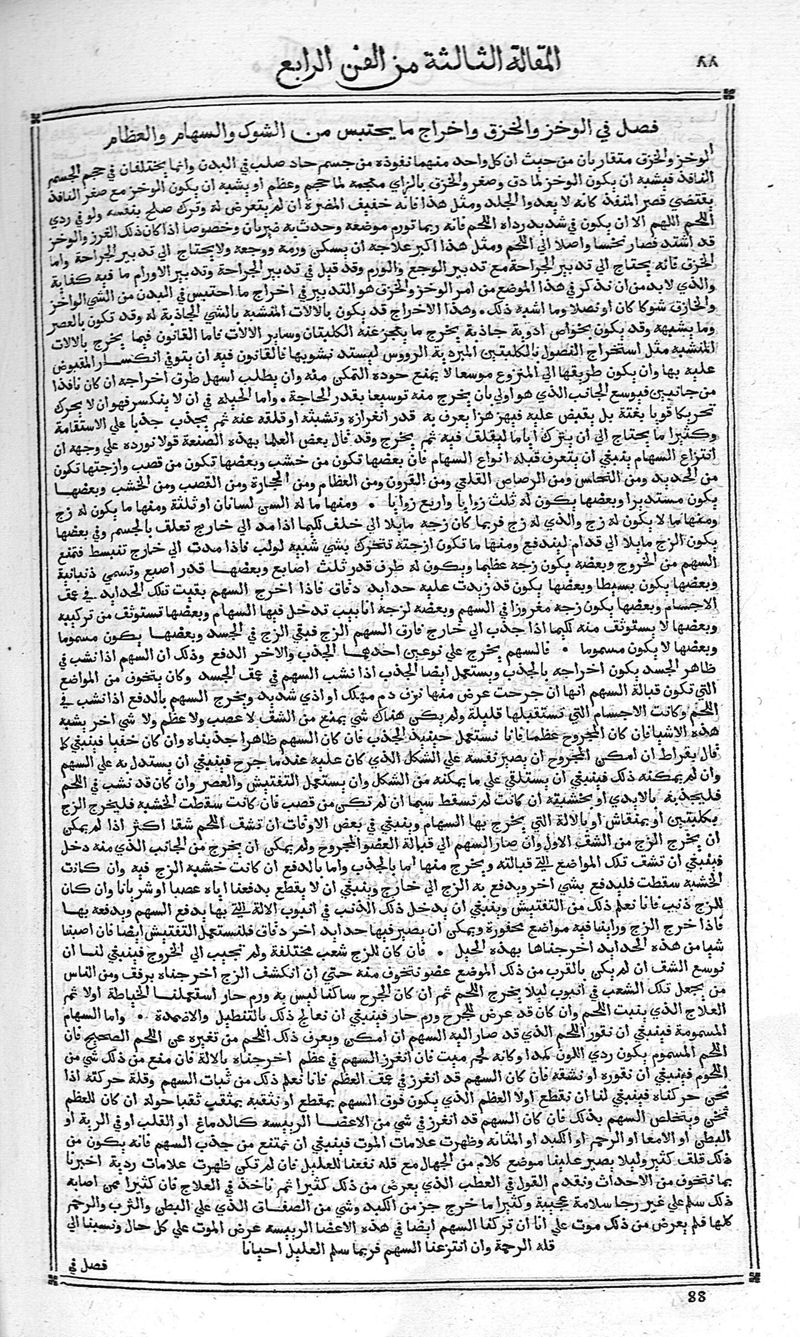 ٨٨
المقالة الثالثة من الفن الرابع
فصل في الوخز والخزق واخراج ما يحتبس من الشوك والسهام والعظام
الوخز والخزق متقاربان من حيث ان كل واحد منهما نفوذة من جسم حاد صلب في البدن وانما يختلفان في حجم الجسم
النافذ فيشبه ان يكون الوخز لما دق وصغر والخزق بالزاي معجمة لما حجم وعظم او يشبه ان يكون الوخز مع صغر النافذ
يقتضي قصر المنفذ كانه لا يعدوا الجلد ومثل هذا فانه خفيف المضرة ان لم يتعرض له وترك صلح بنفسه ولو في ردي
اللحم اللهم الا ان يكون في شديد رداة اللحم فانه ربما تورم موضعه وحدث به ضربان وخصوصا اذا كان ذلك الغرز والوخز
قد اشتد فصار نخسا واصلا الي اللحم ومثل هذا اكبر علاجه ان يسكن ورمه ووجعه ولا يحتاج الي تدبير الجراحة واما
الخزق فانه يحتاج الي تدبير الجراحة مع تدبير الوجع والورم وقد قيل في تدبير الجراحة وتدبير الاورام ما فيه كفاية
والذي لا بد من ان نذكر في هذا الموضع من امر الوخز والخزق هو التدبير في اخراج ما احتبس في البدن من الشي الواخز
والخازق شوكا كان او نصلا وما اشبه ذلك ٭ وهذا الاخراج قد يكون بالالات المنشبة بالشي الجاذبة له وقد تكون بالعصر
وما يشبهه وقد يكون بخواص ادوية جاذبة يخرج ما يعجز عنه الكلبتان وساير الالات فاما القانون فيما يخرج بالالات
المنشبة مثل استخراج النصول بالكلبتين المبردية الرووس ليستد نشوبها فالقانون فيه ان يتوقي انكسار المقبوض
عليه بها وان يكون طريقها الي المنزوع موسعا لا يمنع جودة التمكن منه وان يطلب اسهل طرق اخراجه ان كان نافذا
من جانبين فيوسع الجانب الذي هو اولي بان يخرج منه توسيعا بقدر الحاجة ٭ واما الحيلة في ان لا ينكسر فهو ان لا يحرك
تحريكا قويا بغتة بل يقبض عليه فيهز هزا يعرف به قدر انغرازه وتشبثه او قلقه عنه ثم يجذب جذبا علي الاستقامة
وكثيرا ما يحتاج الي ان يترك اياما ليقلق فيه ثم يخرج وقد قال بعض العلما بهذه الصنعة قولا نورده علي وجهه ان
انتزاع السهام ينبغي ان يتعرف قبله انواع السهام فان بعضها تكون من خشب وبعضها تكون من قصب وازجتها تكون
من الحديد ومن النحاس ومن الرصاص القلعي ومن القرون ومن العظام ومن الحجارة ومن القصب ومن الخشب وبعضها
يكون مستديرا وبعضها يكون له ثلث زوايا واربع زوايا ٭ ومنها ما له السن لسانان او ثلثة ومنها ما يكون له زج
ومنها ما لا يكون له زج والذي له زج فربما كان زجه مايلا الي خلف لكيما اذا مد الي خارج تعلق بالجسم وفي بعضها
يكون الزج مايلا الي قدام ليندفع ومنها ما تكون ازجته تتحرك بشي شبيه لولب فاذا مدت الي خارج تنبسط فتمنع
السهم من الخروج وبعضه يكون زجه عظيما ويكون له طرف قدر ثلث اصابع وبعضها قدر اصبع وتسمي ذبانية
وبعضها يكون بسيطا وبعضها يكون قد زيدت عليه حدايد دقاق فاذا اخرج السهم بقيت تلك الحدايد في عمق
الاجسام وبعضها يكون زجه مغروزا في السهم وبعضه لزجه انابيب تدخل فيها السهام وبعضها تستوثق من تركيبه
وبعضها لا يستوثق منه لكيما اذا جذب الي خارج فارق السهم الزج فيبقي الزج في الجسد وبعضها يكون مسموما
وبعضها لا يكون مسموما ٭ فالسهم يخرج علي نوعين احدهما الجذب والاخر الدفع وذلك ان السهم اذا نشب في
ظاهر الجسد يكون اخراجه بالجذب ويستعمل ايضا الجذب اذا نشب السهم في عمق الجسد وكان يتخوف من المواضع
التي تكون قبالة السهم انها ان جرحت عرض منها نزف دم مهلك او اذي شديد ويخرج السهم بالدفع اذا نشب في
اللحم وكانت الاجسام التي تستقبلها قليلة ولم يكن هناك شي يمنع من الشق لا عصب ولا عظم ولا شي اخر يشبه
هذه الاشيا فان كان المجروح عظما فانا نستعمل حينيذ الجذب فان كان السهم ظاهرا جذبناه وان كان خفيا فينبغي كما
قال بقراط ان امكن المجروح ان يصير نفسه علي الشكل الذي كان عليه عند ما جرح فينبغي ان يستدل به علي السهم
وان لم يمكنه ذلك فينبغي ان يستلقي علي ما يمكنه من الشكل وان يستعمل التفتيش والعصر وان كان قد نشب في اللحم
فليجذبه بالايدي او بخشبته ان كانت لم تسقط سيما ان لم تكن من قصب فان كانت سقطت الخشبة فليخرج الزج
بكلبتين او بمنقاش او بالالة التي يخرج بها السهام وينبغي في بعض الاوقات ان تشق اللحم شقا اكثر اذا لم يمكن
ان يخرج الزج من الشق الاول وان صار السهم الي قبالة العضو المجروح ولم يمكن ان يخرج من الجانب الذي منه دخل
فينبغي ان تشق تلك المواضع التي قبالته ويخرج منها اما بالجذب واما بالدفع ان كانت خشبة الزج فيه وان كانت
الخشبة سقطت فليدفع بشي اخر ويدفع به الزج الي خارج وينبغي ان لا يقطع بدفعنا اياه عصبا او شريانا وان كان
للزج ذنب فانا نعلم ذلك من التفتيش وينبغي ان يدخل ذلك الذنب في انبوب الالة التي بها يدفع السهم ويدفعه بها
فاذا خرج الزج وراينا فيه مواضع محفورة ويمكن ان يصير فيها حدايد اخر دقاق فلنستعمل التفتيش ايضا فان اصبنا
شيا من هذه الحدايد اخرجناها بهذه الحيل ٭ فان كان للزج شعب مختلفة ولم تجيب الي الخروج فينبغي لنا ان
نوسع الشق ان لم يكن بالقرب من ذلك الموضع عضو نتخوف منه حتي ان انكشف الزج اخرجناه برفق ومن الناس
من يجعل تلك الشعب في انبوب ليلا يخرج اللحم ثم ان كان الجرح ساكنا ليس به ورم حار استعملنا الخياطة اولا ثم
العلاج الذي ينبت اللحم وان كان قد عرض للجرح ورم حار فينبغي ان نعالج ذلك بالتنطيل والاضمدة ٭ واما السهام
المسمومة فينبغي ان نقور اللحم الذي قد صار اليه السهم ان امكن ويعرف ذلك اللحم من تغيره عن اللحم الصحيح فان
اللحم المسموم يكون ردي اللون كمدا وكانه لحم ميت فان انغرز السهم في عظم اخرجناه بالالة فان منع من ذلك شي من
اللحوم فينبغي ان نقوره او نشقه فان كان السهم قد انغرز في عمق العظم فانا نعلم ذلك من ثبات السهم وقلة حركته اذا
نحن حركناه فينبغي لنا ان نقطع اولا العظم الذي يكون فوق السهم بمقطع او نثقبه بمثقب ثقبا حوله ان كان للعظم
ثخن ويتخلص السهم بذلك فان كان السهم قد انغرز في شي من الاعضا الرييسة كالدماغ او القلب او في الرية او
البطن او الامعا او الرحم او الكبد او المثانة وظهرت علامات الموت فينبغي ان نمتنع من جذب السهم فانه يكون من
ذلك قلق كثير وليلا يصير علينا موضع كلام من الجهال مع قلة نفعنا للعليل فان لم تكن ظهرت علامات ردية اخبرنا
بما نتخوف من الاحداث ونقدم القول في العطب الذي يعرض من ذلك كثيرا ثم ناخذ في العلاج فان كثيرا ممن اصابه
ذلك سلم علي غير رجا سلامة عجيبة وكثيرا ما خرج جز من الكبد وشي من الصفاق الذي علي البطن والثرب والرحم
كلها فلم يعرض من ذلك موت علي انا ان تركنا السهم ايضا في هذه الاعضا الرييسة عرض الموت علي كل حال ونسبنا الي
قلة الرحمة وان انتزعنا السهم فربما سلم العليل احيانا
فصل في
88